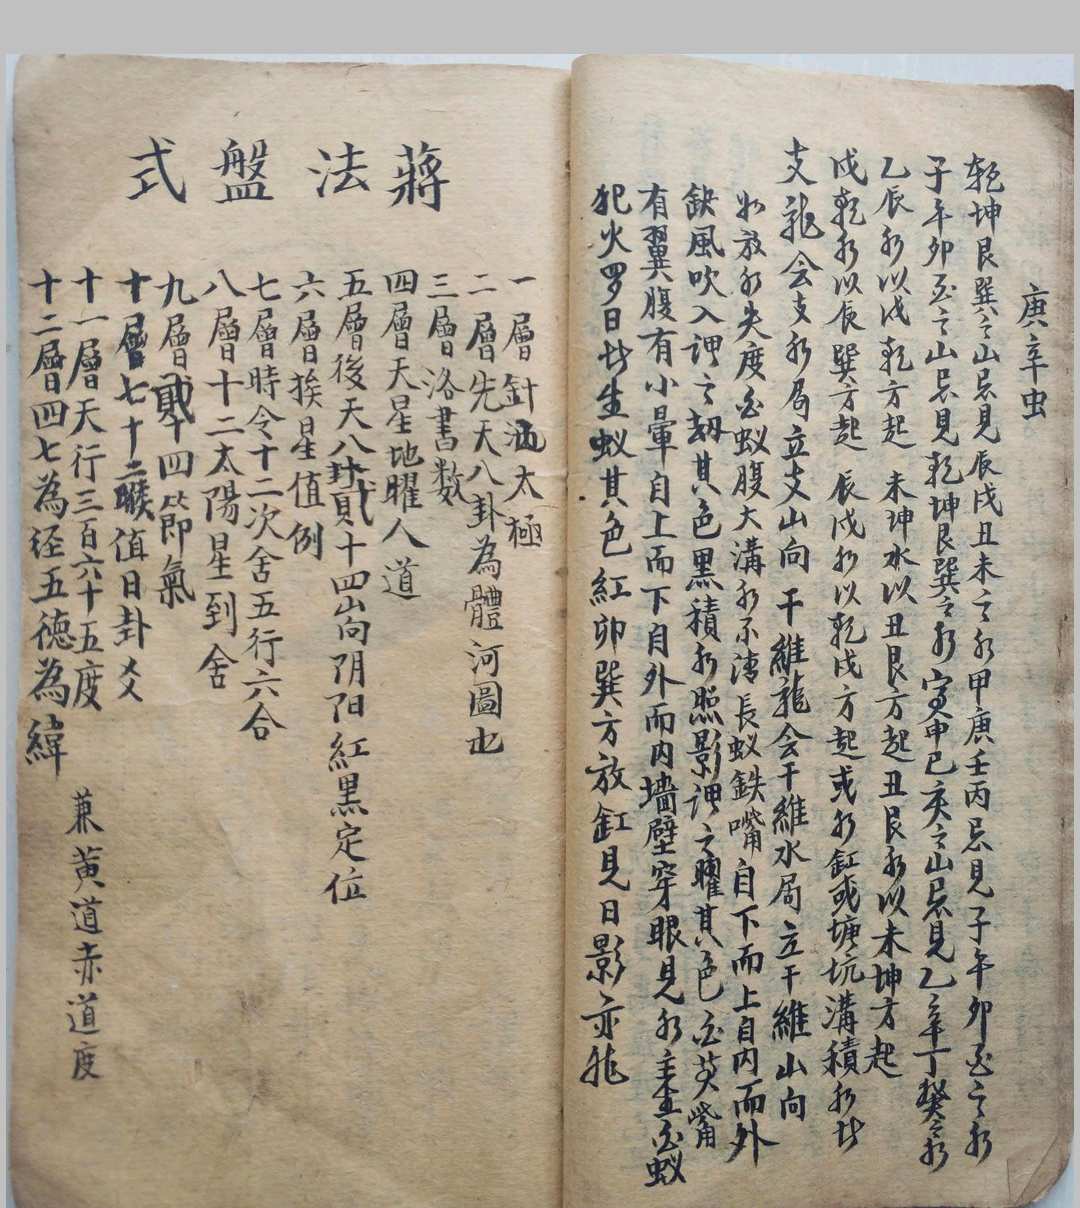 庚辛虫
乾坤艮巽之山忌見辰戌丑未之水甲庚壬丙忌見子午卯酉之水
子午卯酉之山忌見乾坤艮巽之水寅申巳亥之山忌見乙辛丁癸之水
乙辰水以戌乾方起未坤水以丑艮方起丑艮水以未坤方起
戌乾水以辰巽方起辰戌水以乾戌方起或水缸或塘坑溝積水皆
支龍会支水局立支山向干維龍会干維水局立干維山向
如放水失度白蚁腹大溝水不清長蚁鉄嘴自下而上自内而外
缺風吹入謂之刼其色黑積水照影謂之曜其色白英嘴
有翼腹有小暈自上而下自外而内墻壁穿眼見水主生白蚁
犯火罗日皆生蚁其色紅卯巽方放缸見日影亦能
蔣法盤式
一層針洒太極
二層先天八卦為體河圖也
三層洛書数
四層天星地曜人道
五層後天八卦貳十四山向阴阳紅黑定位
六層日挨星值例
七層時令十二次舍五行六合
八層十二太陽星到舍
九層貳十四節氣
十層七十二候值日卦爻
十一層天行三百六十五度
十二層四七為经五德為緯
兼黄道赤道度